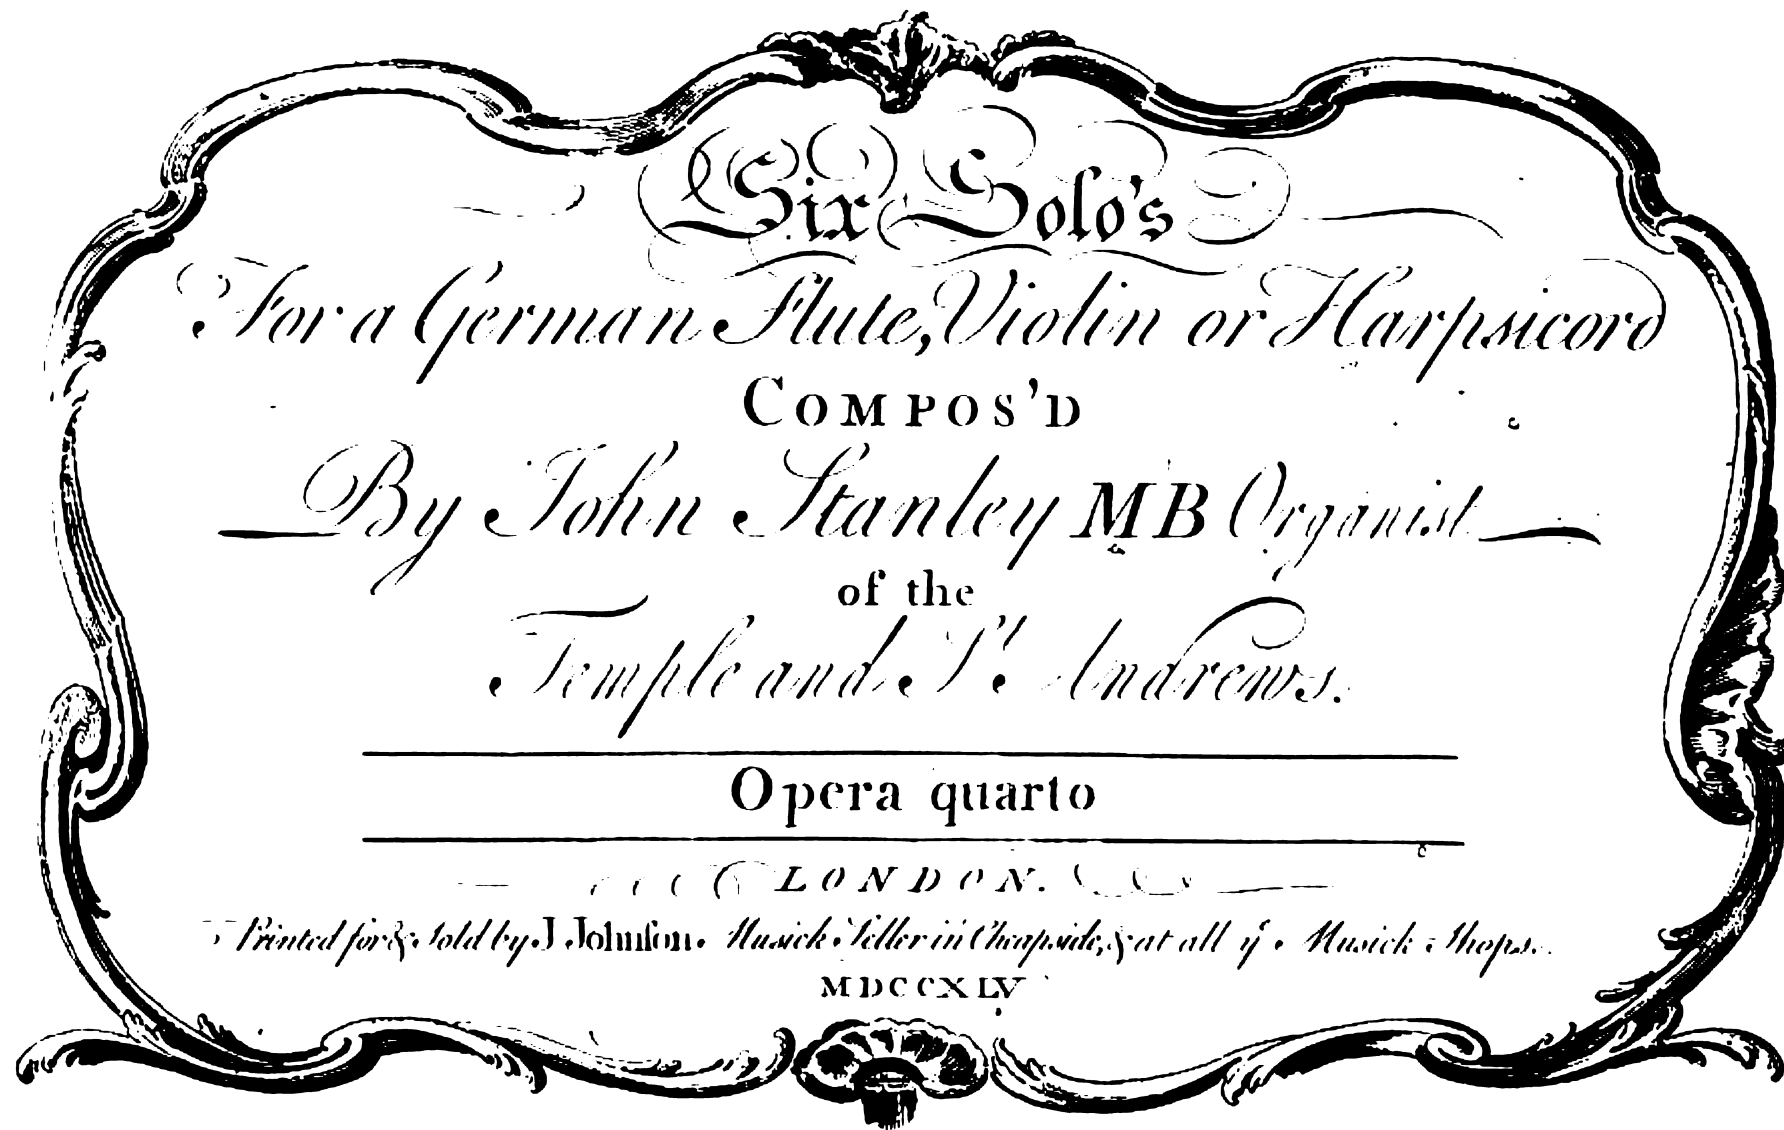 Six Solo's
For a German Flute, Violin or Harpsicord
COMPOS'D
By John Stanley MB Organist
of the
Temple and St Andrews.
Opera quarto
LONDON.
Printed for & Sold by J Johnson. Musick Seller in Cheapside, & at all ye Musick Shops.
MDCCXLV